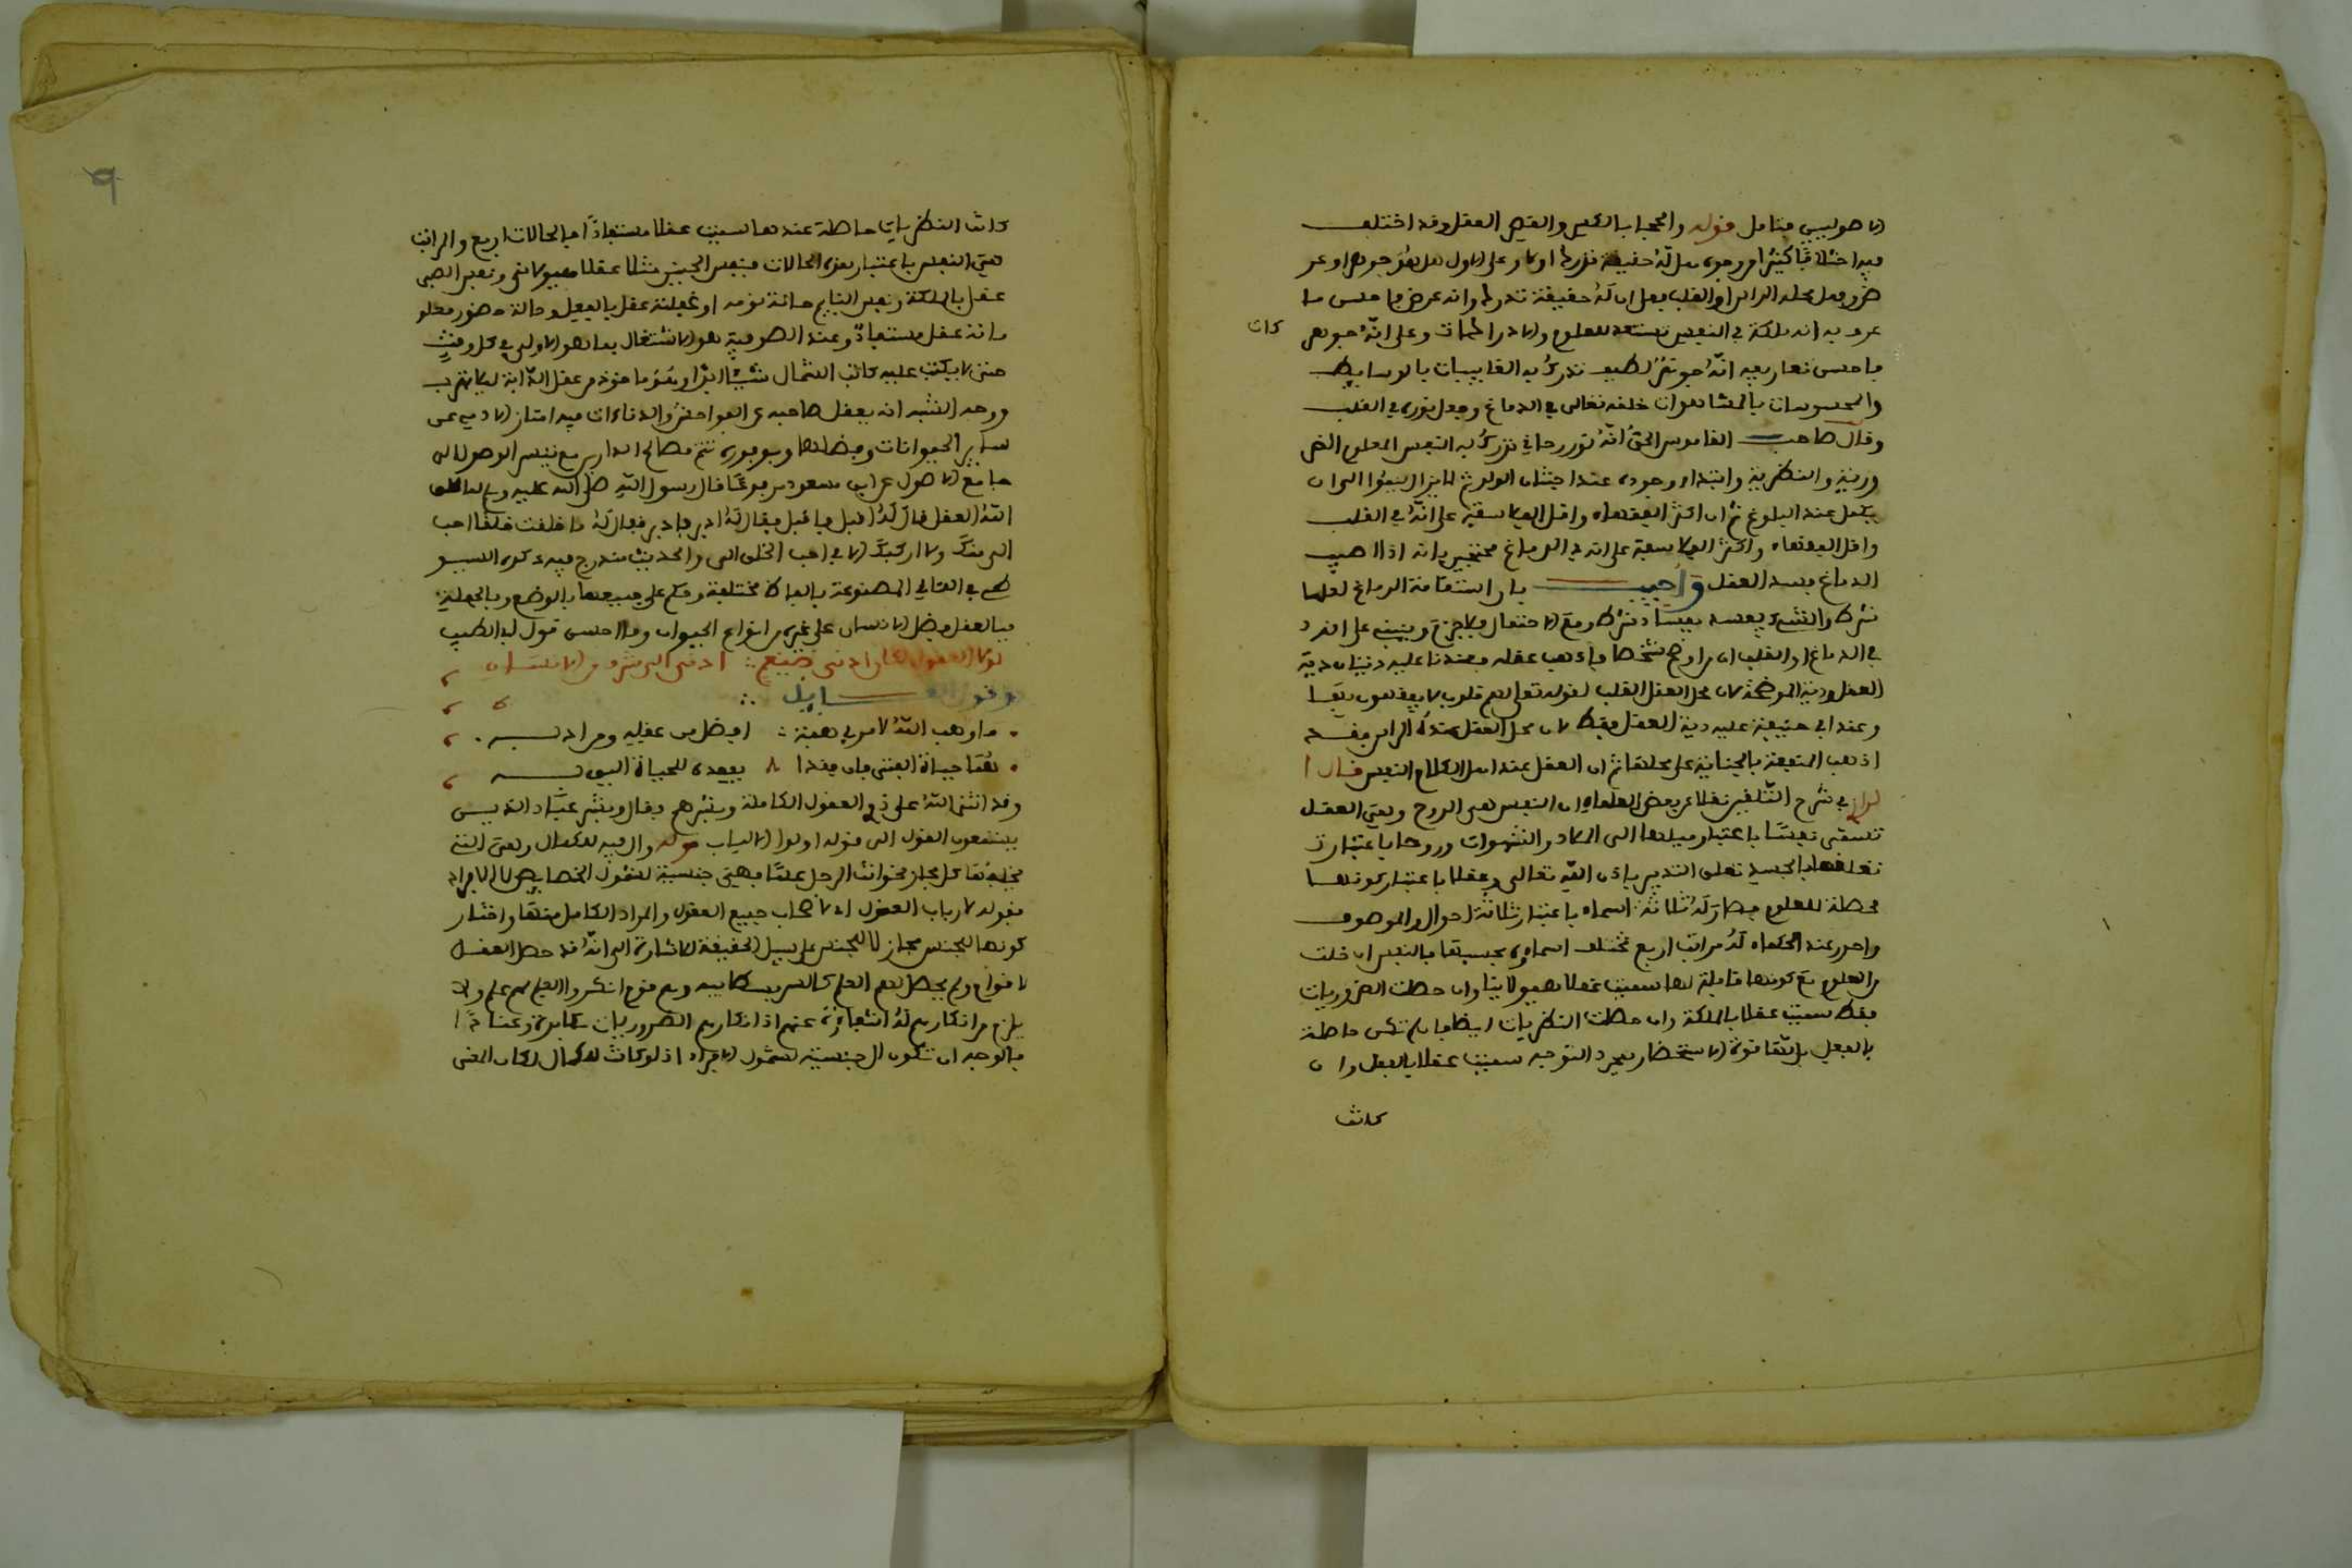 الاصوليين فتامل قوله والحجا بالكسر والقصر العقل وقد اختلف
فيه اختلافا كثيرا من وجوه هل له حقيقة تدرك او لا وعلى الاول هل هو جوهر او عرض
وهل محله الراس او القلب فعلى ان له حقيقة تدرك وانه عرض فاحسن ما
عرف به انه ملكة في النفس تستعد للعلوم والادراكات وعلى انه جوهر
كات
فاحسن تعاريفه انه جوهر لطيف تدرك به الغايبات بالوسايط
والمحسوسات بالمشاهدات خلقه تعالى في الدماغ وجعل نوره في القلب
وقال صاحب القاموس الحق انه نور روحاني تدرك به النفس العلوم الضر
ورية والنظرية وابتداء وجوده عند اجتنان الولد ثم لا يزال ينموا الى ان
يكمل عند البلوغ ثم ان اكثر الفقهاء واقل الفلاسفة على انه في القلب
واقل الفقهاء واكثر الفلاسفة على انه في الدماغ محتجين بانه اذا اصيب
الدماغ فسد العقل واجيب بان استقامة الدماغ لعلها
شرط والشيء يفسد بفساد شرطه ومع الاحتمال فلا جزم وينبني على الخلاف
في الدماغ او القلب ان من اوضح شخصا فاذهب عقله فعندنا عليه ديتان دية
العقل ودية الموضحة لان محل العقل القلب لقوله تعالى لهم قلوب لا يفقهون بها
وعند ابي حنيفة عليه دية العقل فقط لان محل العقل عنده الراس فقد
اذهب المنفعة بالجناية على محلها ثم ان العقل عند اهل الكلام النفس قال ا
في شرح التلقين نقلا عن بعض العلماء ان النفس هي الروح وهي العقل
تسمى نفسا باعتبار ميلها الى الملاذ والشهوات وروحا باعتبار
تعلقها بالجسد تعلق التدبير باذن الله تعالى وعقلا باعتبار كونها
محصلة للعلوم فصار له ثلاثة اسماء باعتبار ثلاثة احوال والموصوف
واحد وعند الحكماء له مراتب اربع تختلف اسماؤه بحسبها فالنفس ان خلت
من العلوم مع كونها قابلة لها سميت عقلا هيولانيا وان حصلت الضروريات
فقط سميت عقلا بالملكة وان حصلت النظريات ايضا فان لم تكن حاصلة
بالفعل بل لها قوة الاستحضار بمجرد التوجه سميت عقلا بالفعل وان
كانت
كانت النظريات حاصلة عندها سميت عقلا مستفادا فالحالات اربع والمراتب
هي النفس باعتبار هذه الحالات فنفس الجنين مثلا عقل هيولاني ونفس الصبي
عقل بالملكة ونفس النايم حالة نومه او غفلته عقل بالفعل وحالة حضور معلو
ماته عقل مستفاد وعند الصوفية هو الاشتغال بما هو الاولى في كل وقت
حتى لا يكتب عليه كاتب الشمال شيئا ابدا وهو ماخوذ من عقل الدابة ليلا تهرب
ووجه الشبه انه يعقل صاحبه عن الفواحش والدناءات فيه امتاز الادمي عن
ساير الحيوانات وفضلها وبوجوده تتم مصالح الدارين مع تيسر الوصول الى
جامع الاصول عن ابن مسعود مرفوعا قال رسول الله صلى الله عليه وسلم لما خلق
الله العقل قال له اقبل فاقبل فقال له ادبر فادبر فقال له ما خلقت خلقا احب
الي منك ولا اركبك الا في احب الخلق الي والحديث مندرج فيه ذكره السيو
طي في اللئالي المصنوعة بالفاظ مختلفة وحكم على جميعها بالوضع وبالجملة
فبالعقل فضل الانسان على غيره من انواع الحيوان وما احسن قول ابي الطيب
لولا العقول لكان ادنى ضيغم ∴ ادنى الى شرف من الانسان
وقول القايل ∴
ما وهب الله لامرئ هبة ∴ افضل من عقله ومن ادبه
هما حياة الفتى فان فقدا ∴ ففقده للحياة اليق به
وقد اثنى الله على ذوي العقول الكاملة وبشرهم فقال وبشر عباد الذين
يستمعون القول الى قوله اولوا الالباب قوله وال فيه للكمال وهي التي
تخلفها كل مجازا نحو انت الرجل علما فهي جنسية لشمول الخصايص لا للافراد
فقوله لارباب العقول اي لاصحاب جميع العقول والمراد الكامل منها واختار
كونها للجنس مجازا لا للجنس على سبيل الحقيقة للاشارة الى انه قد حصل العقل
لاقوام ولم يحصل لهم العلم كالسوفسطائية وهم قوم انكروا العلم مع علم ولا
يلزم من انكارهم له انتفاؤه عنهم اذ انكارهم الضروريات مكابرة وعنادا
فالوجه ان تكون ال جنسية لشمول الافراد اذ لو كانت للكمال لكان المعنى